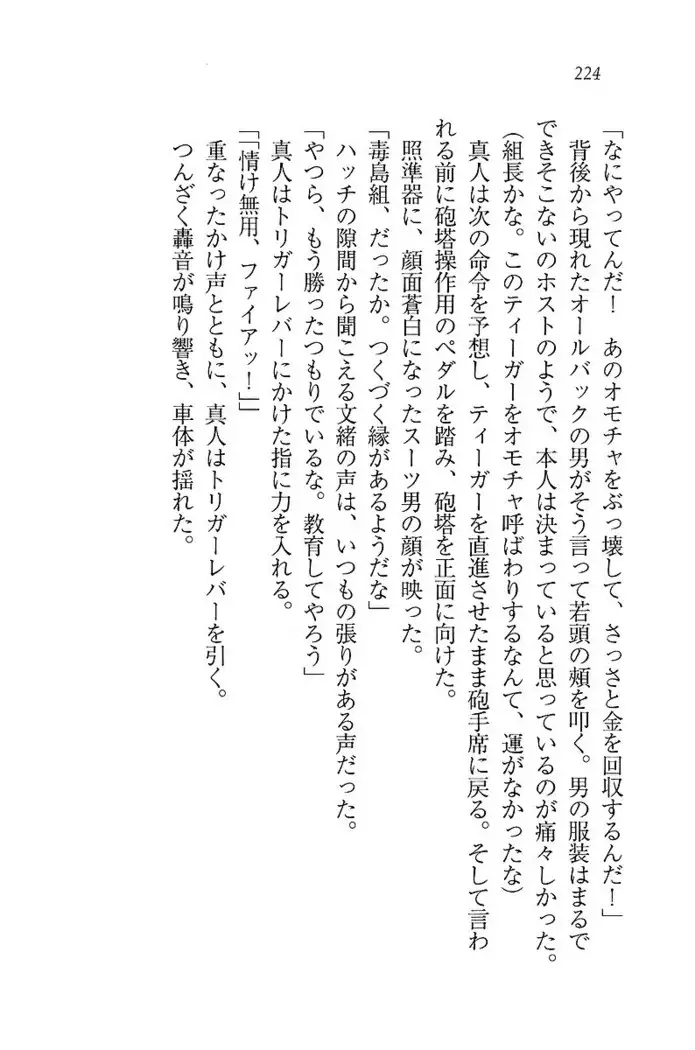 224
「なにやってんだ！　あのオモチャをぶっ壊して、さっさと金を回収するんだ！」
　背後から現れたオールバックの男がそう言って若頭の頰を叩く。男の服装はまるで
できそこないのホストのようで、本人は決まっていると思っているのが痛々しかった。
（組長かな。このティーガーをオモチャ呼ばわりするなんて、運がなかったな）
　真人は次の命令を予想し、ティーガーを直進させたまま砲手席に戻る。そして言わ
れる前に砲塔操作用のペダルを踏み、砲塔を正面に向けた。
　照準器に、顔面蒼白になったスーツ男の顔が映った。
「毒島組、だったか。つくづく縁があるようだな」
　ハッチの隙間から聞こえる文緒の声は、いつもの張りがある声だった。
「やつら、もう勝ったつもりでいるな。教育してやろう」
　真人はトリガーレバーにかけた指に力を入れる。
「「情け無用、ファイアッ！」」
　重なったかけ声とともに、真人はトリガーレバーを引く。
　つんざく轟音が鳴り響き、車体が揺れた。